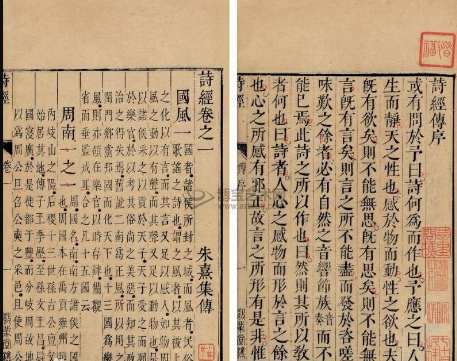 詩經傳序
或有問於予曰詩何為而作也予應之曰人
生而靜天之性也感於物而動性之欲也夫
既有欲矣則不能無思既有思矣則不能無
言既有言矣則言之所不能盡而發於咨嗟
咏歎之餘者必有自然之音響節族音奏而不
能已焉此詩之所以作也曰然則其所以教
者何也曰詩者人心之感物而形於言之餘
也心之所感有邪正故言之所形有是非惟
詩經
詩經卷之一
朱熹集傳
國風一
國者諸侯所封之域而風者民俗
歌謠之詩也謂之風者以其被上
之化以有言而其言又足以感人如物因
風之動以有聲而其聲又足以動物也是
以諸侯采之以貢於天子天子受之而列
於樂官於以考其俗尚之美惡而知其政
治之得失焉舊說二南為正風所以用之
閨門鄉黨邦國而化天下也十三國為變
風則亦領在樂官以時存肄備觀
省而垂監戒耳合之凡十五國云
周南一之一
周國名南南方諸侯之國
也周國本在禹貢雍州境
內岐山之陽后稷十三世孫古公亶甫
始居其地傳子王季歷至孫文王昌辟
國寖廣於是徙都于豐而分岐周故地
以為周公旦召公奭之采邑且使周公
詩經
卷一